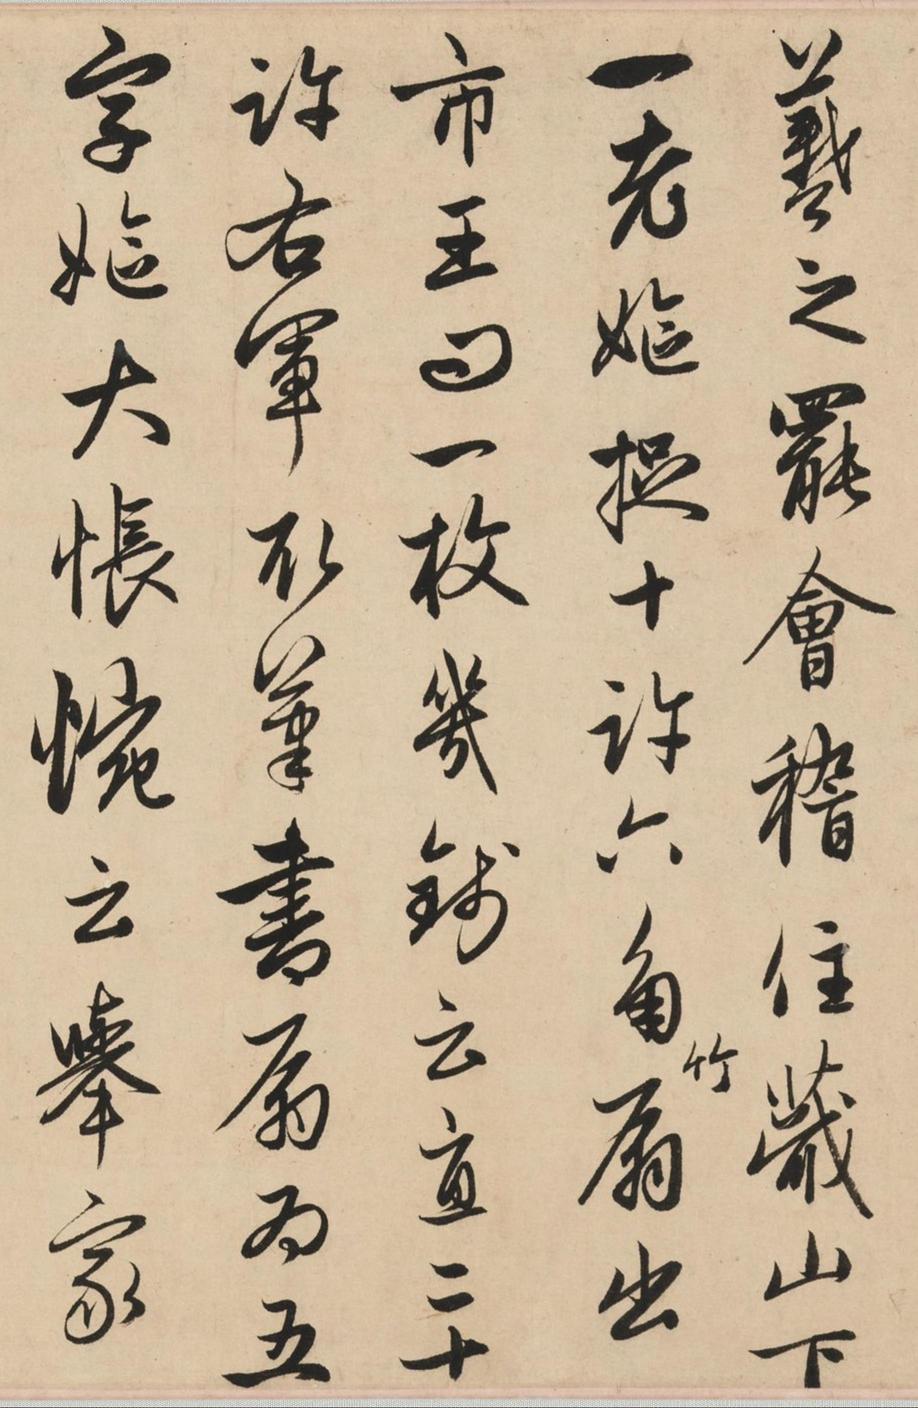 羲之罷會稽住蕺山下
一老嫗捉十許六角竹扇出
市王曰一枚幾錢云直二十
許右軍取筆書扇扇為五
字嫗大悵惋云舉家